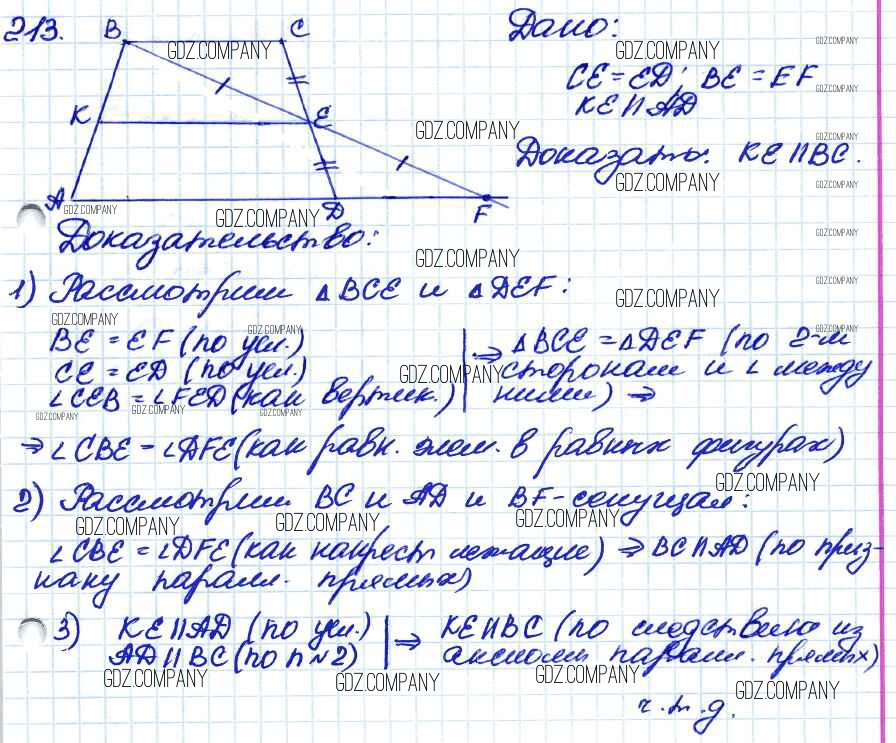 213.
B C
Дано:
CE = ED; BE = EF
KE || AD
K E
Доказать: KE || BC.
A D F
Доказательство:
1) Рассмотрим △BCE и △DEF:
BE = EF (по усл.)
CE = ED (по усл.)
∠CEB = ∠FED (как вертик.)
⇒ △BCE = △DEF (по 2-м
сторонам и ∠ между
ними) ⇒
⇒ ∠CBE = ∠DFE (как равн. элем. в равных фигурах)
2) Рассмотрим BC и AD и BF - секущая:
∠CBE = ∠DFE (как накрест лежащие) ⇒ BC || AD (по приз-
наку паралл. прямых)
3) KE || AD (по усл.)
AD || BC (по п №2)
⇒ KE || BC (по следствию из
аксиомы паралл. прямых)
ч.т.д.
GDZ.COMPANY